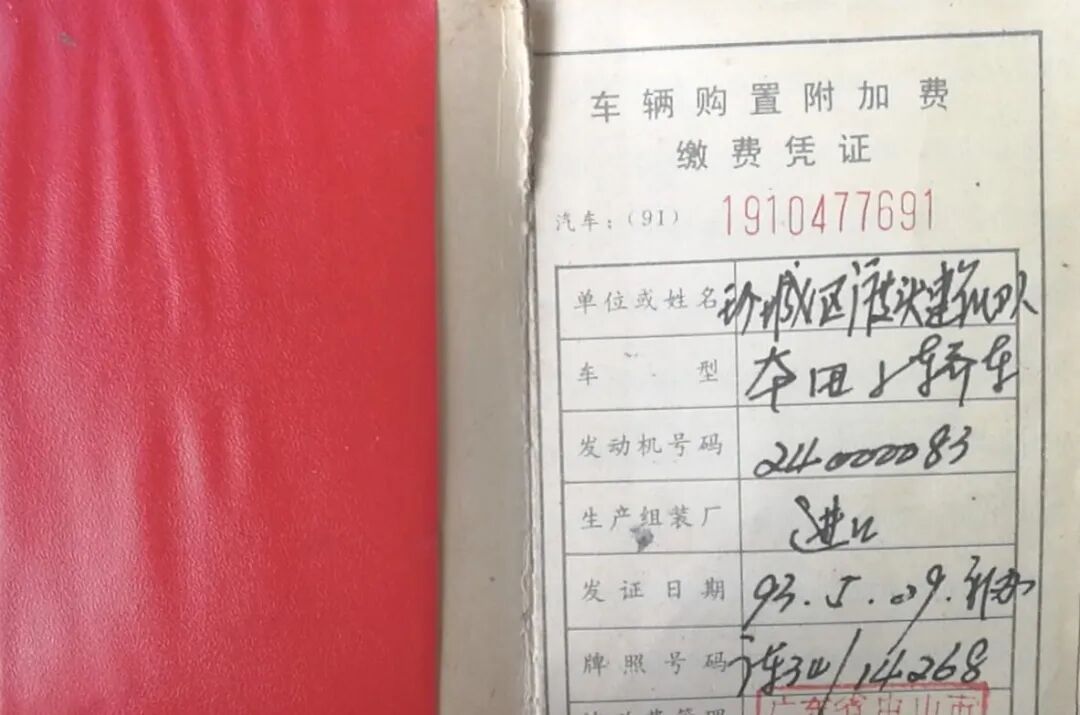 车辆购置附加费
缴费凭证
汽车：(91) 1910477691
单位或姓名 城区渡头建筑队
车型 本田小轿车
发动机号码 24000083
生产组装厂 进口
发证日期 93.5.09.补办
牌照号码 34/14268
广东省中山市